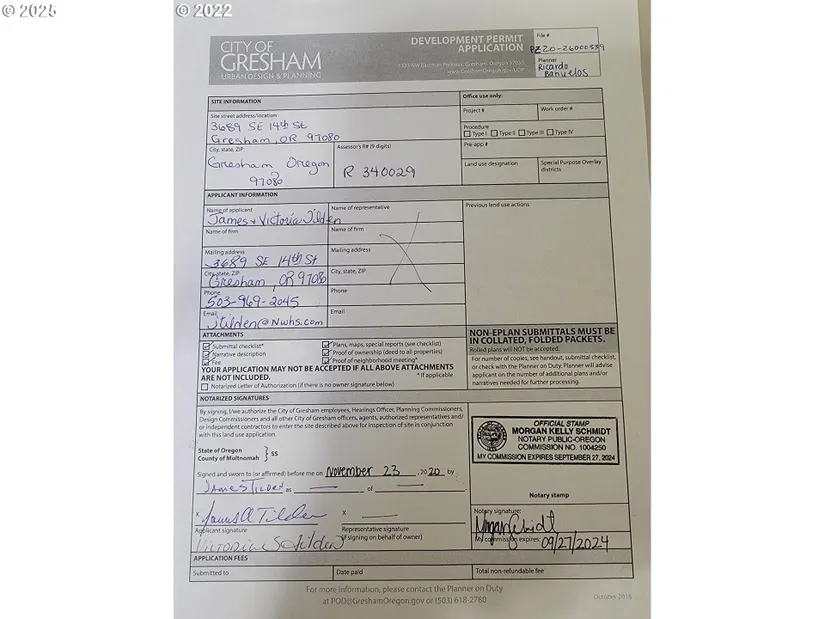 © 2025
© 2022
CITY OF
GRESHAM
URBAN DESIGN & PLANNING
DEVELOPMENT PERMIT
APPLICATION
1333 NW Eastman Parkway, Gresham, Oregon 97030
www.GreshamOregon.gov/UDP
File #
PZ20-26000559
Planner
Ricardo
Banuelos
SITE INFORMATION
Office use only:
Site street address/location
3689 SE 14th St
Gresham, OR 97080
Project #
Work order #
Procedure
Type I Type II Type III Type IV
City, state, ZIP
Gresham Oregon
97080
Assessor's R# (9 digits)
R 340029
Pre-app #
Land use designation
Special Purpose Overlay
districts
APPLICANT INFORMATION
Previous land use actions
Name of applicant
James & Victoria Tilden
Name of representative
Name of firm
Name of firm
Mailing address
3689 SE 14th St
Mailing address
City, state, ZIP
Gresham, OR 97080
City, state, ZIP
Phone
503-969-2045
Phone
Email
jtilden@nwhs.com
Email
ATTACHMENTS
Submittal checklist*
Narrative description
Fee
Plans, maps, special reports (see checklist)
Proof of ownership (deed to all properties)
Proof of neighborhood meeting*
* If applicable
YOUR APPLICATION MAY NOT BE ACCEPTED IF ALL ABOVE ATTACHMENTS
ARE NOT INCLUDED.
Notarized Letter of Authorization (if there is no owner signature below)
NON-EPLAN SUBMITTALS MUST BE
IN COLLATED, FOLDED PACKETS.
Rolled plans WILL NOT be accepted.
For number of copies, see handout, submittal checklist,
or check with the Planner on Duty. Planner will advise
applicant on the number of additional plans and/or
narratives needed for further processing.
NOTARIZED SIGNATURES
By signing, I/we authorize the City of Gresham employees, Hearings Officer, Planning Commissioners,
Design Commissioners and all other City of Gresham officers, agents, authorized representatives and/
or independent contractors to enter the site described above for inspection of site in conjunction
with this land use application.
State of Oregon
County of Multnomah
} SS
Signed and sworn to (or affirmed) before me on November 23, 2020 by
James Tilden as — of —
X James A Tilden
X —
Applicant signature
Victoria S Tilden
Representative signature
(if signing on behalf of owner)
OFFICIAL STAMP
MORGAN KELLY SCHMIDT
NOTARY PUBLIC-OREGON
COMMISSION NO. 1004250
MY COMMISSION EXPIRES SEPTEMBER 27, 2024
Notary stamp
Notary signature:
My commission expires: 09/27/2024
APPLICATION FEES
Submitted to
Date paid
Total non-refundable fee
For more information, please contact the Planner on Duty
at POD@GreshamOregon.gov or (503) 618-2780
October 2018